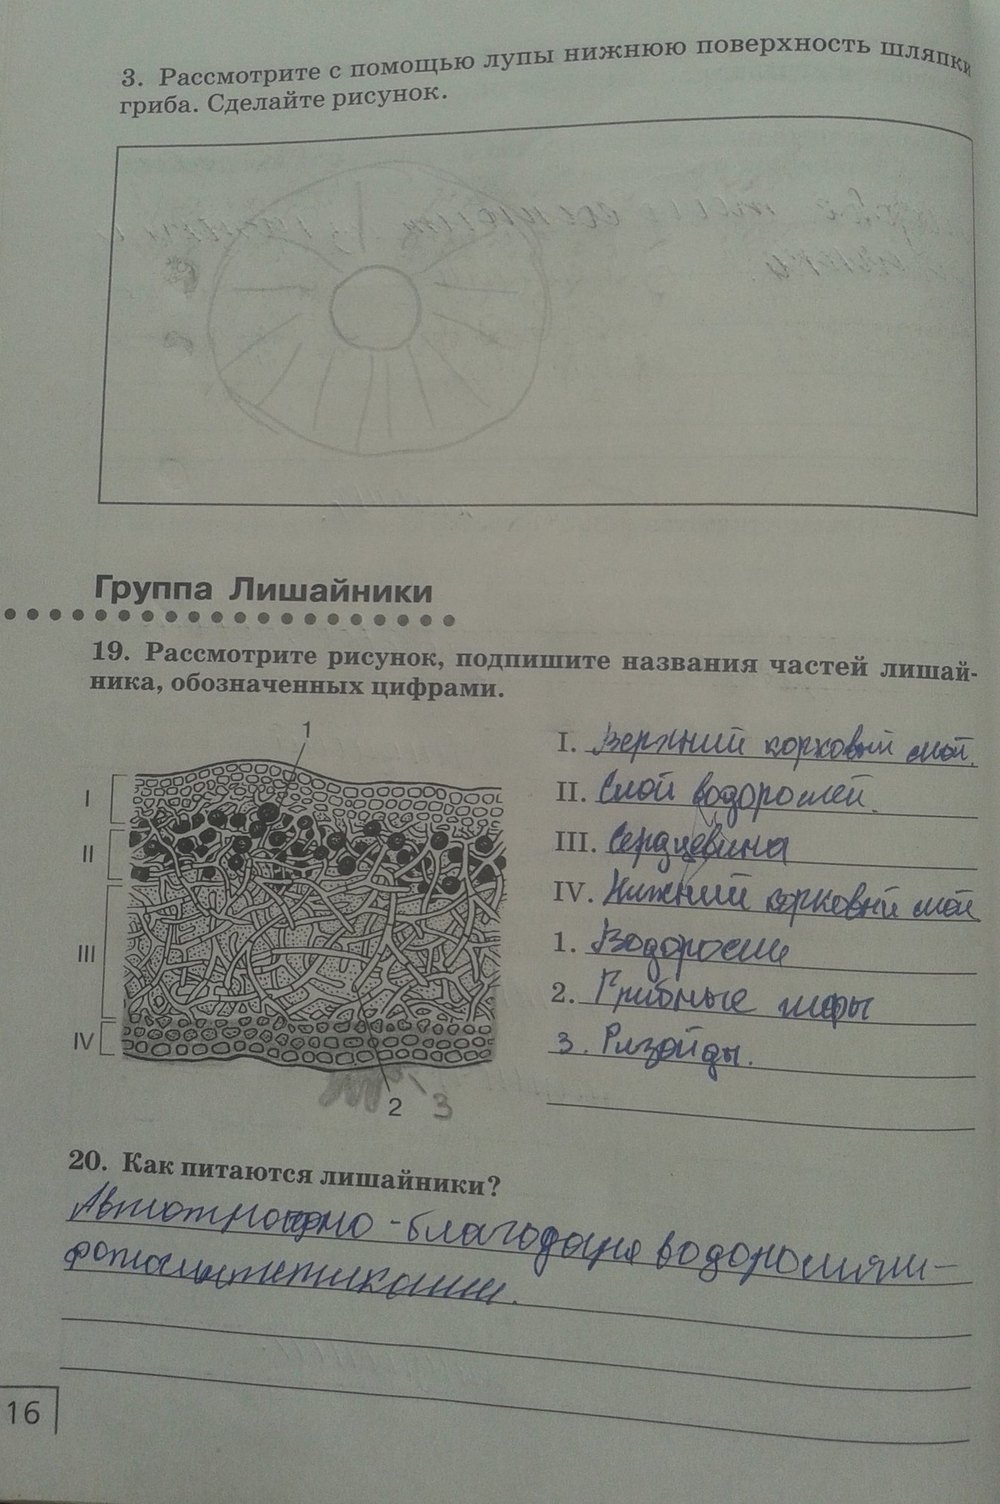 3. Рассмотрите с помощью лупы нижнюю поверхность шляпки
гриба. Сделайте рисунок.
Группа Лишайники
19. Рассмотрите рисунок, подпишите названия частей лишай-
ника, обозначенных цифрами.
1
I
II
III
IV
2
3
I. Верхний корковый слой.
II. Слой водорослей.
III. Сердцевина
IV. Нижний корковый слой
1. Водоросли
2. Грибные гифы
3. Ризойды.
20. Как питаются лишайники?
Автотрофно - благодаря водорослям-
фотосинтетиками.
16